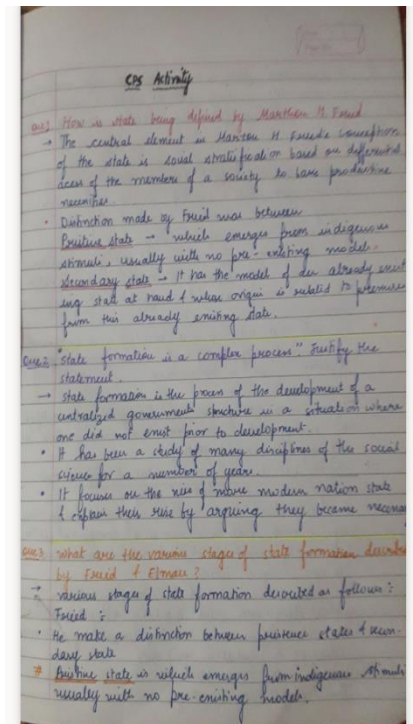 CPS Activity
Que:1 How is state being defined by Morton H. Fried
→ The central element in Morton H Fried's conception
of the state is social stratification based on differential
acess of the members of a society to base productive
necessities.
• Distinction made by Fried was between
Pristine state → which emerges from indigenous
stimuli, usually with no pre-existing models.
Secondary state → It has the model of an already exist
ing state at hand & whose origin is related to pressures
from this already existing state.
Que:2 "State formation is a complex process." Justify the
statement.
→ State formation is the process of the development of a
centralized government structure in a situation where
one did not exist prior to development.
• It has been a study of many disciplines of the social
science for a number of years.
• It focuses on the rise of more modern nation state
& explain their rise by arguing they became necessa
Que:3 What are the various stages of state formation describe
by Fried & Elman?
→ various stages of state formation described as follows:-
Fried :-
• He make a distinction between pristine states & secon-
dary state
Pristine state is which emerges from indigenous stimuli
usually with no pre-existing models.